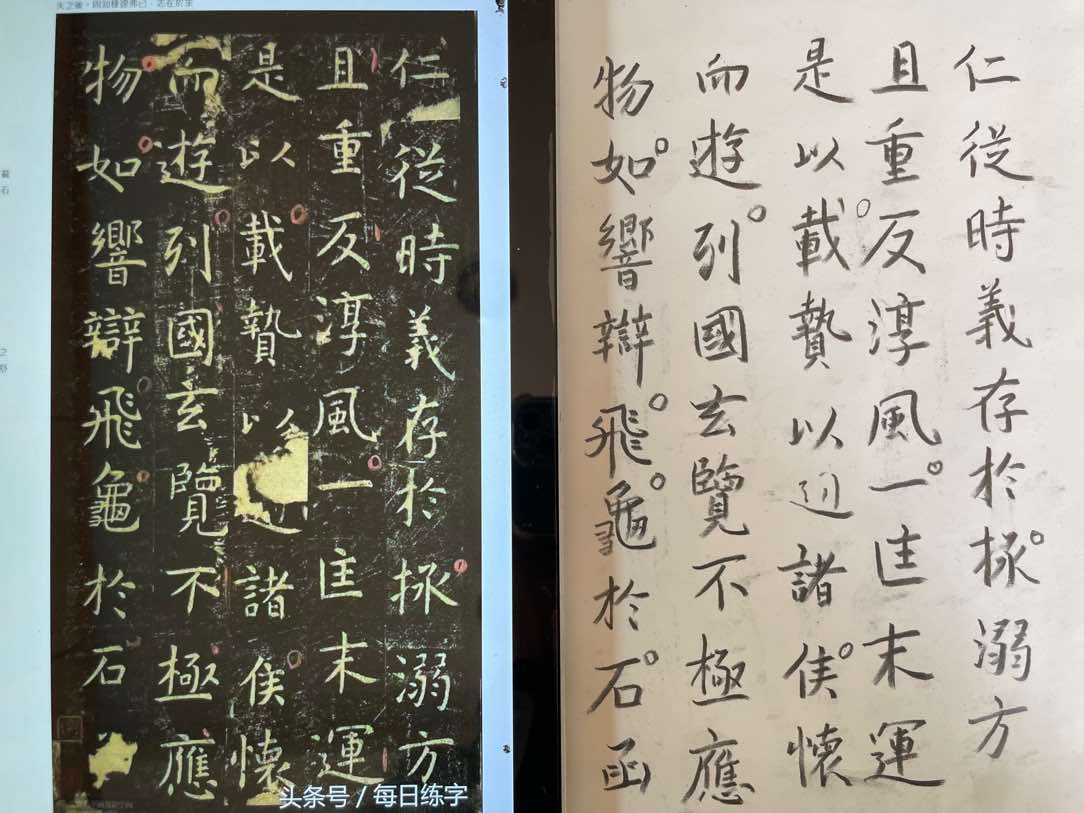 仁從時義存於拯溺方
且重反淳風一匡末運
是以載贄以諸侯懷
而遊列國玄覽不極應
物如響辯飛龜於石
头条号 / 每日练字
仁從時義存於拯溺方
且重反淳風一匡末運
是以載贄以迎諸侯懷
而遊列國玄覽不極應
物如響辯飛龜於石函